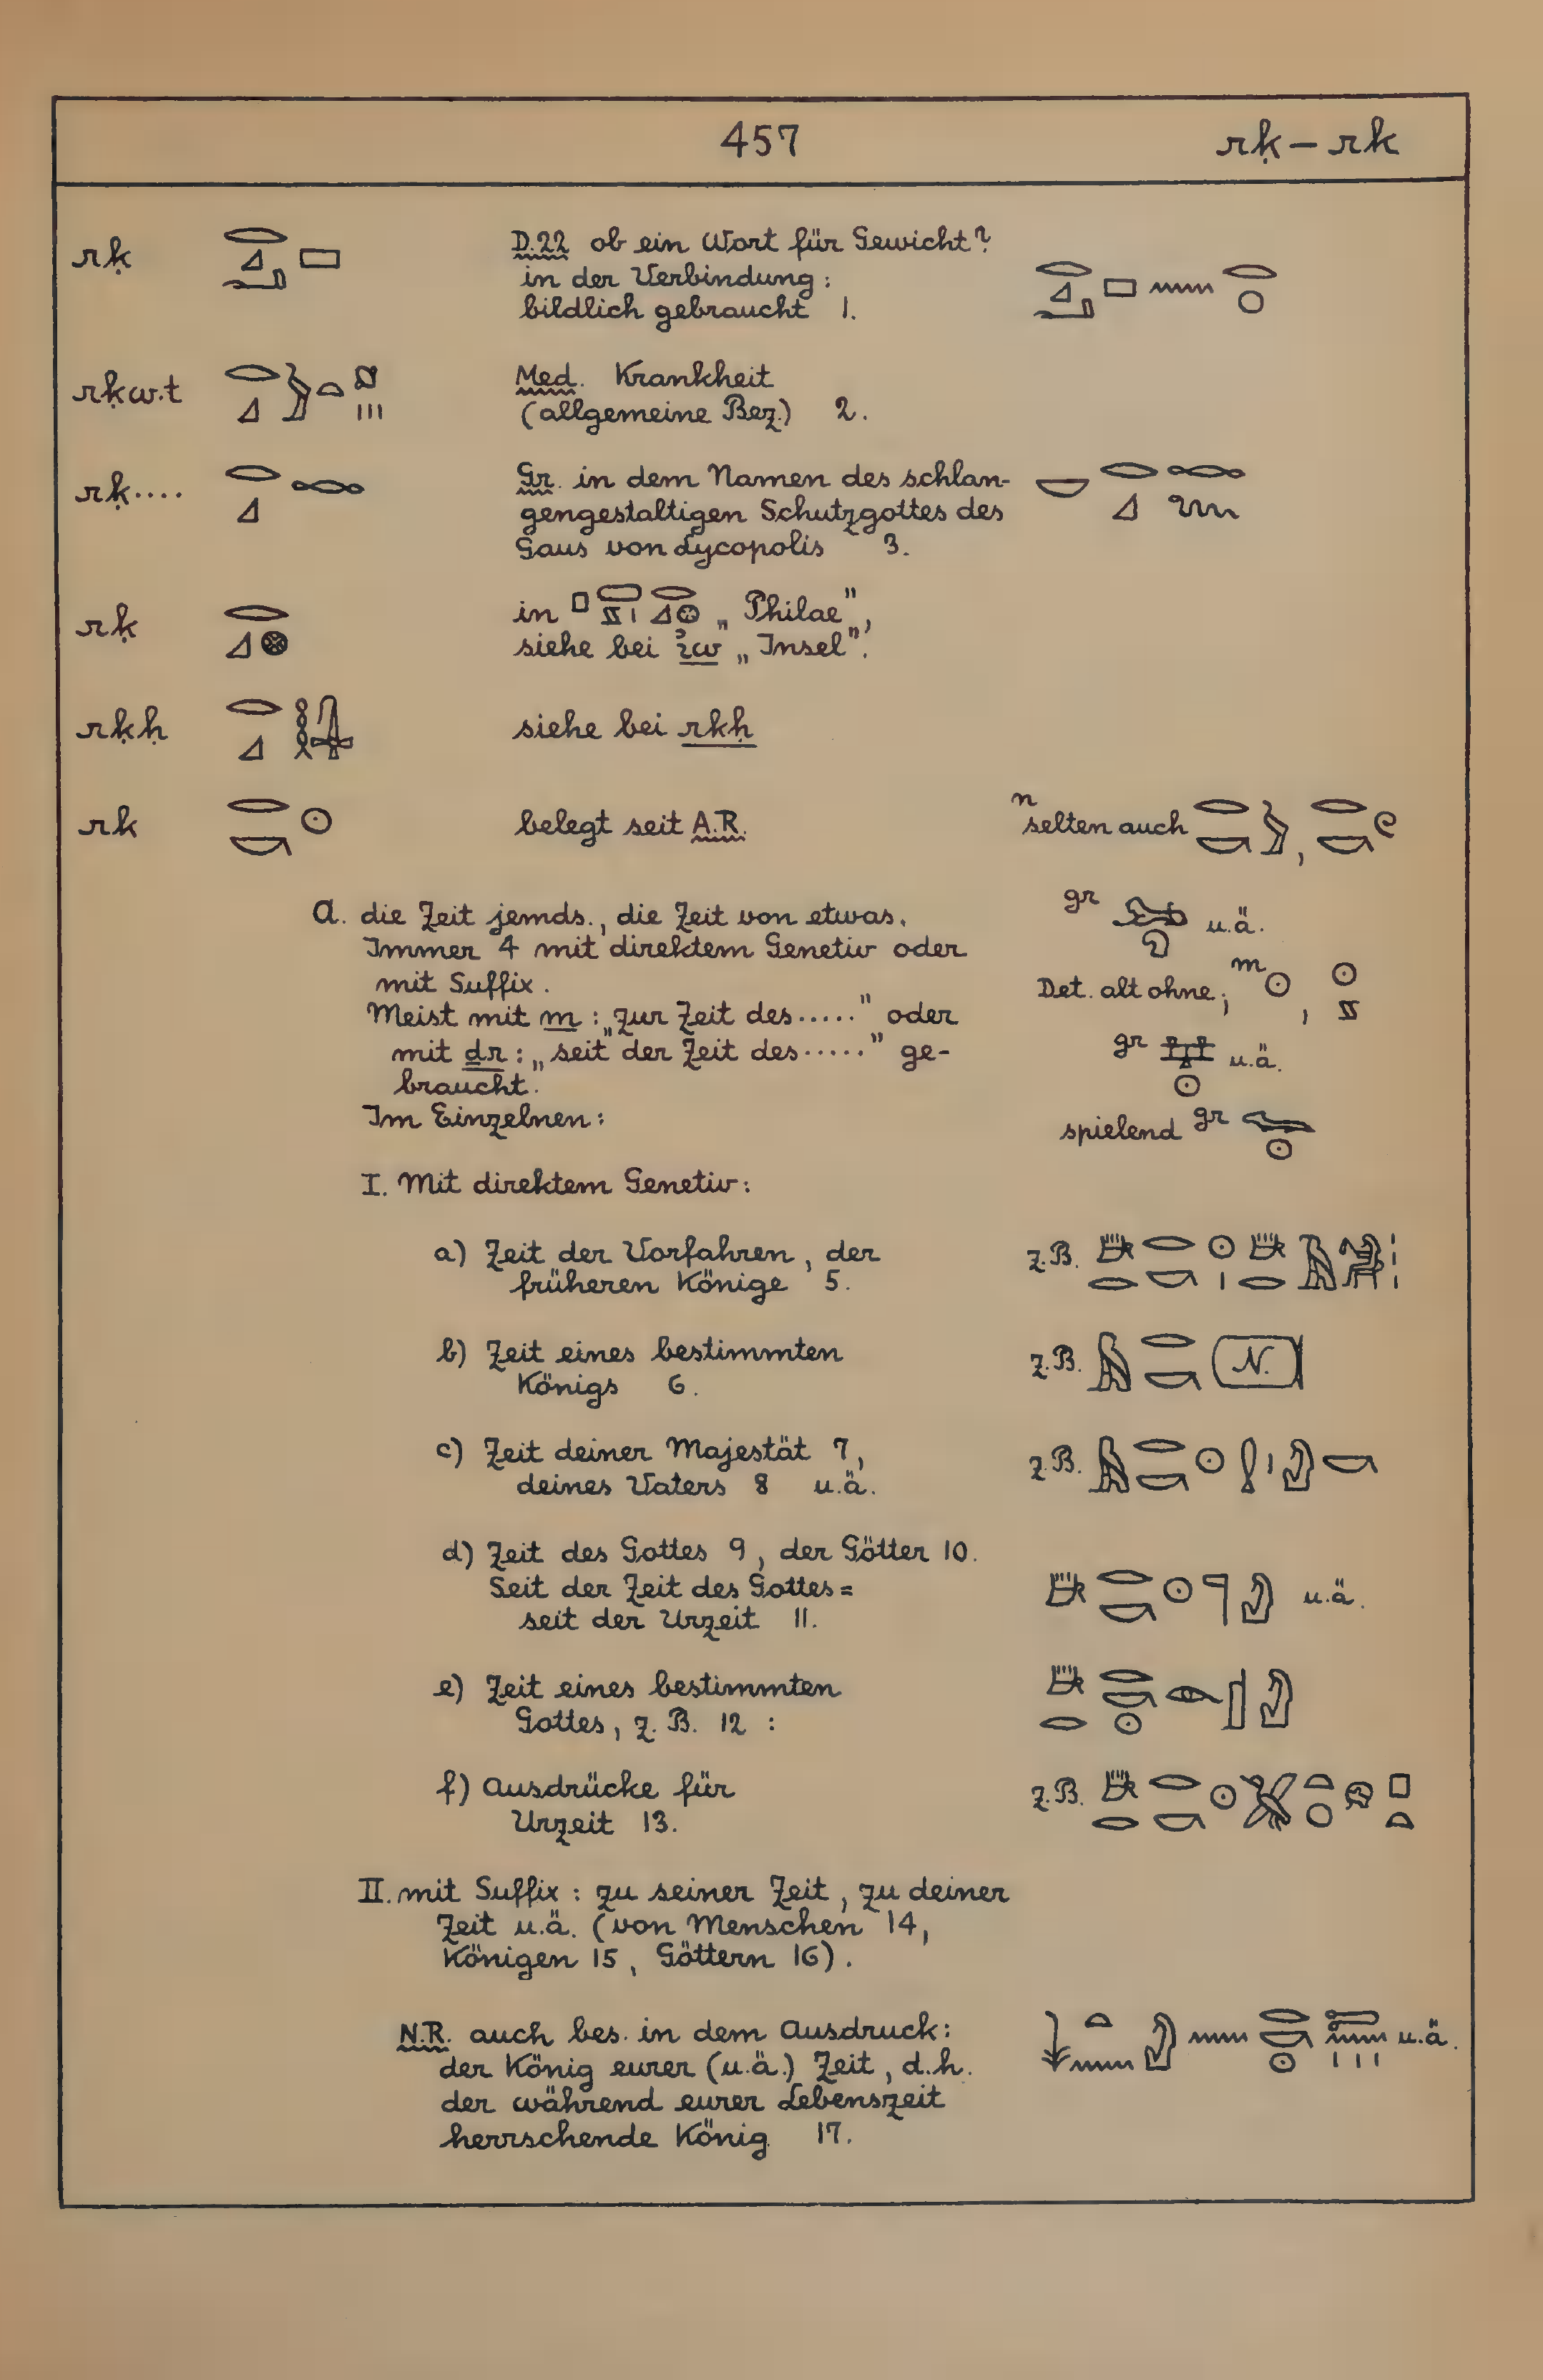 457 rḳ – rk
rḳ D.22 ob ein Wort für Gewicht?
in der Verbindung:
bildlich gebraucht 1.
rḳw.t Med. Krankheit
(allgemeine Bez.) 2.
rḳ.... Gr. in dem Namen des schlan-
gengestaltigen Schutzgottes des
Gaus von Lycopolis 3.
rḳ in „Philae",
siehe bei iw „Insel".
rḳḥ siehe bei rkḥ
rk belegt seit A.R. n selten auch ,
a. die Zeit jemds., die Zeit von etwas. gr u.ä.
Immer 4 mit direktem Genetiv oder
mit Suffix. Det. alt ohne; m ,
Meist mit m: „zur Zeit des....." oder
mit dr: „seit der Zeit des....." ge- gr u.ä.
braucht.
Im Einzelnen: spielend gr
I. Mit direktem Genetiv:
a) Zeit der Vorfahren, der z.B.
früheren Könige 5.
b) Zeit eines bestimmten z.B. N.
Königs 6.
c) Zeit deiner Majestät 7, z.B.
deines Vaters 8 u.ä.
d) Zeit des Gottes 9, der Götter 10.
Seit der Zeit des Gottes = u.ä.
seit der Urzeit 11.
e) Zeit eines bestimmten
Gottes, z.B. 12 :
f) Ausdrücke für z.B.
Urzeit 13.
II. mit Suffix: zu seiner Zeit, zu deiner
Zeit u.ä. (von Menschen 14,
Königen 15, Göttern 16).
N.R. auch bes. in dem Ausdruck: u.ä.
der König eurer (u.ä.) Zeit, d.h.
der während eurer Lebenszeit
herrschende König 17.